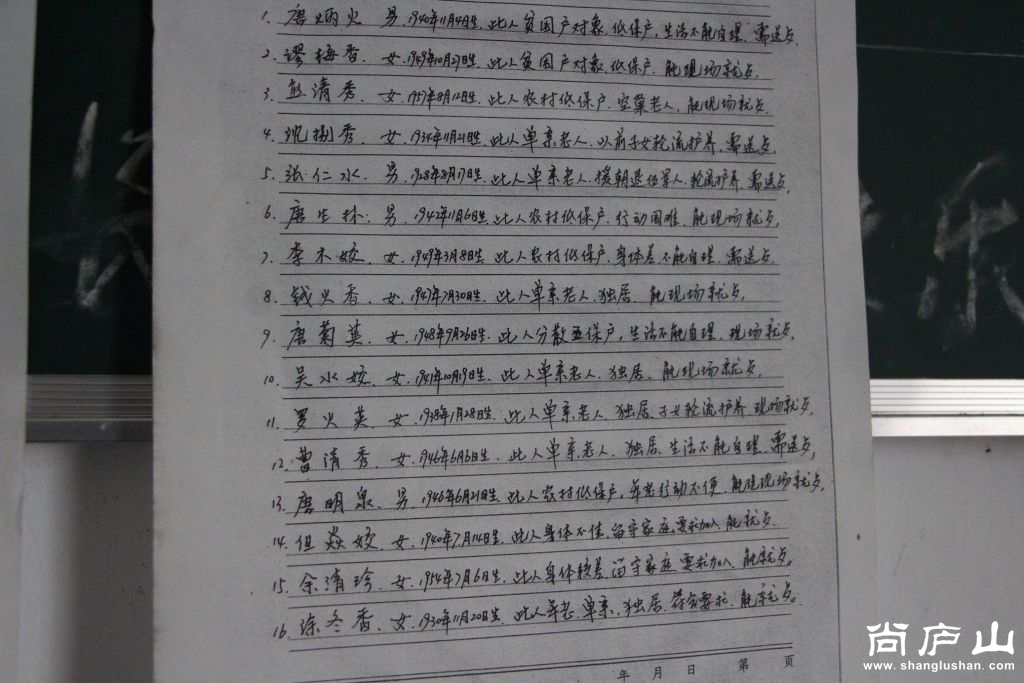 1. 唐炳火 男.1940年11月4日生.此人贫困户对象.低保户,生活不能自理,需送点.
2. 谬梅香.女.1949年10月27日生.此人贫困户对象.低保户.能现场就点.
3. 彭清秀.女.1957年8月12日生.此人农村低保户.空巢老人.能现场就点.
4. 沈掬秀.女.1934年11月21日生.此人单亲老人.以前子女轮流护养.需送点.
5. 张仁水.男.1928年8月17日生.此人单亲老人.援朝退伍军人.轮流护养.需送点.
6. 唐生林.男.1942年11月6日生.此人农村低保户.行动困难.能现场就点.
7. 李木姣.女.1949年3月8日生.此人农村低保户.身体差.不能自理.需送点.
8. 钱火香.女.1947年7月30日生.此人单亲老人.独居.能现场就点.
9. 唐菊英.女.1948年9月26日生.此人分散五保户,生活不能自理.现场就点.
10. 吴水姣.女.1941年10月19日生.此人单亲老人.独居.能现场就点.
11. 罗火英.女.1938年1月28日生.此人单亲老人.独居.子女轮流护养.现场就点.
12. 曹清秀.女.1946年6月6日生.此人单亲老人.独居.生活不能自理.需送点.
13. 唐明泉.男.1946年6月21日生.此人农村低保户,年老行动不便.能现现场就点.
14. 但焱姣.女.1940年7月14日生.此人身体不佳.留守家庭.要求加入.能就点.
15. 余清珍.女.1954年7月6日生.此人身体较差.留守家庭.要求加入.能就点。
16. 涂冬香.女.1930年11月20日生.此人年老.单亲.独居.符合要求.能就点。
年 月 日 第 页
尚庐山
www.shanglushan.com